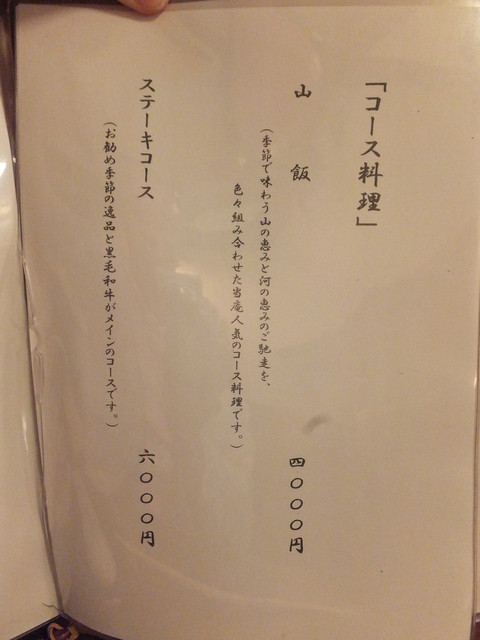 「コース料理」
山飯
四〇〇〇円
（季節で味わう山の恵みと河の恵みのご馳走を、
色々組み合わせた当庵人気のコース料理です。）
ステーキコース
六〇〇〇円
（お勧め季節の逸品と黒毛和牛がメインのコースです。）